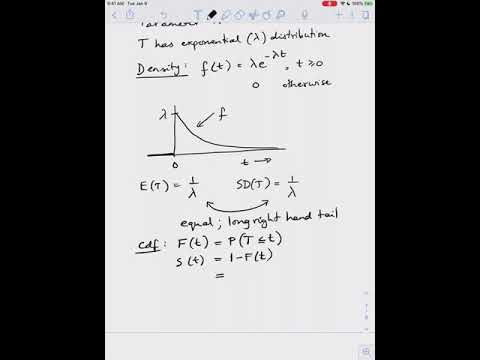 9:41 AM Tue Jan 9
100%
T has exponential (λ) distribution
Density: f(t) = λe^{-λt}, t ≥ 0
0 otherwise
λ
f
0
t →
E(T) = 1/λ SD(T) = 1/λ
equal; long right hand tail
cdf: F(t) = P(T ≤ t)
S(t) = 1 - F(t)
=